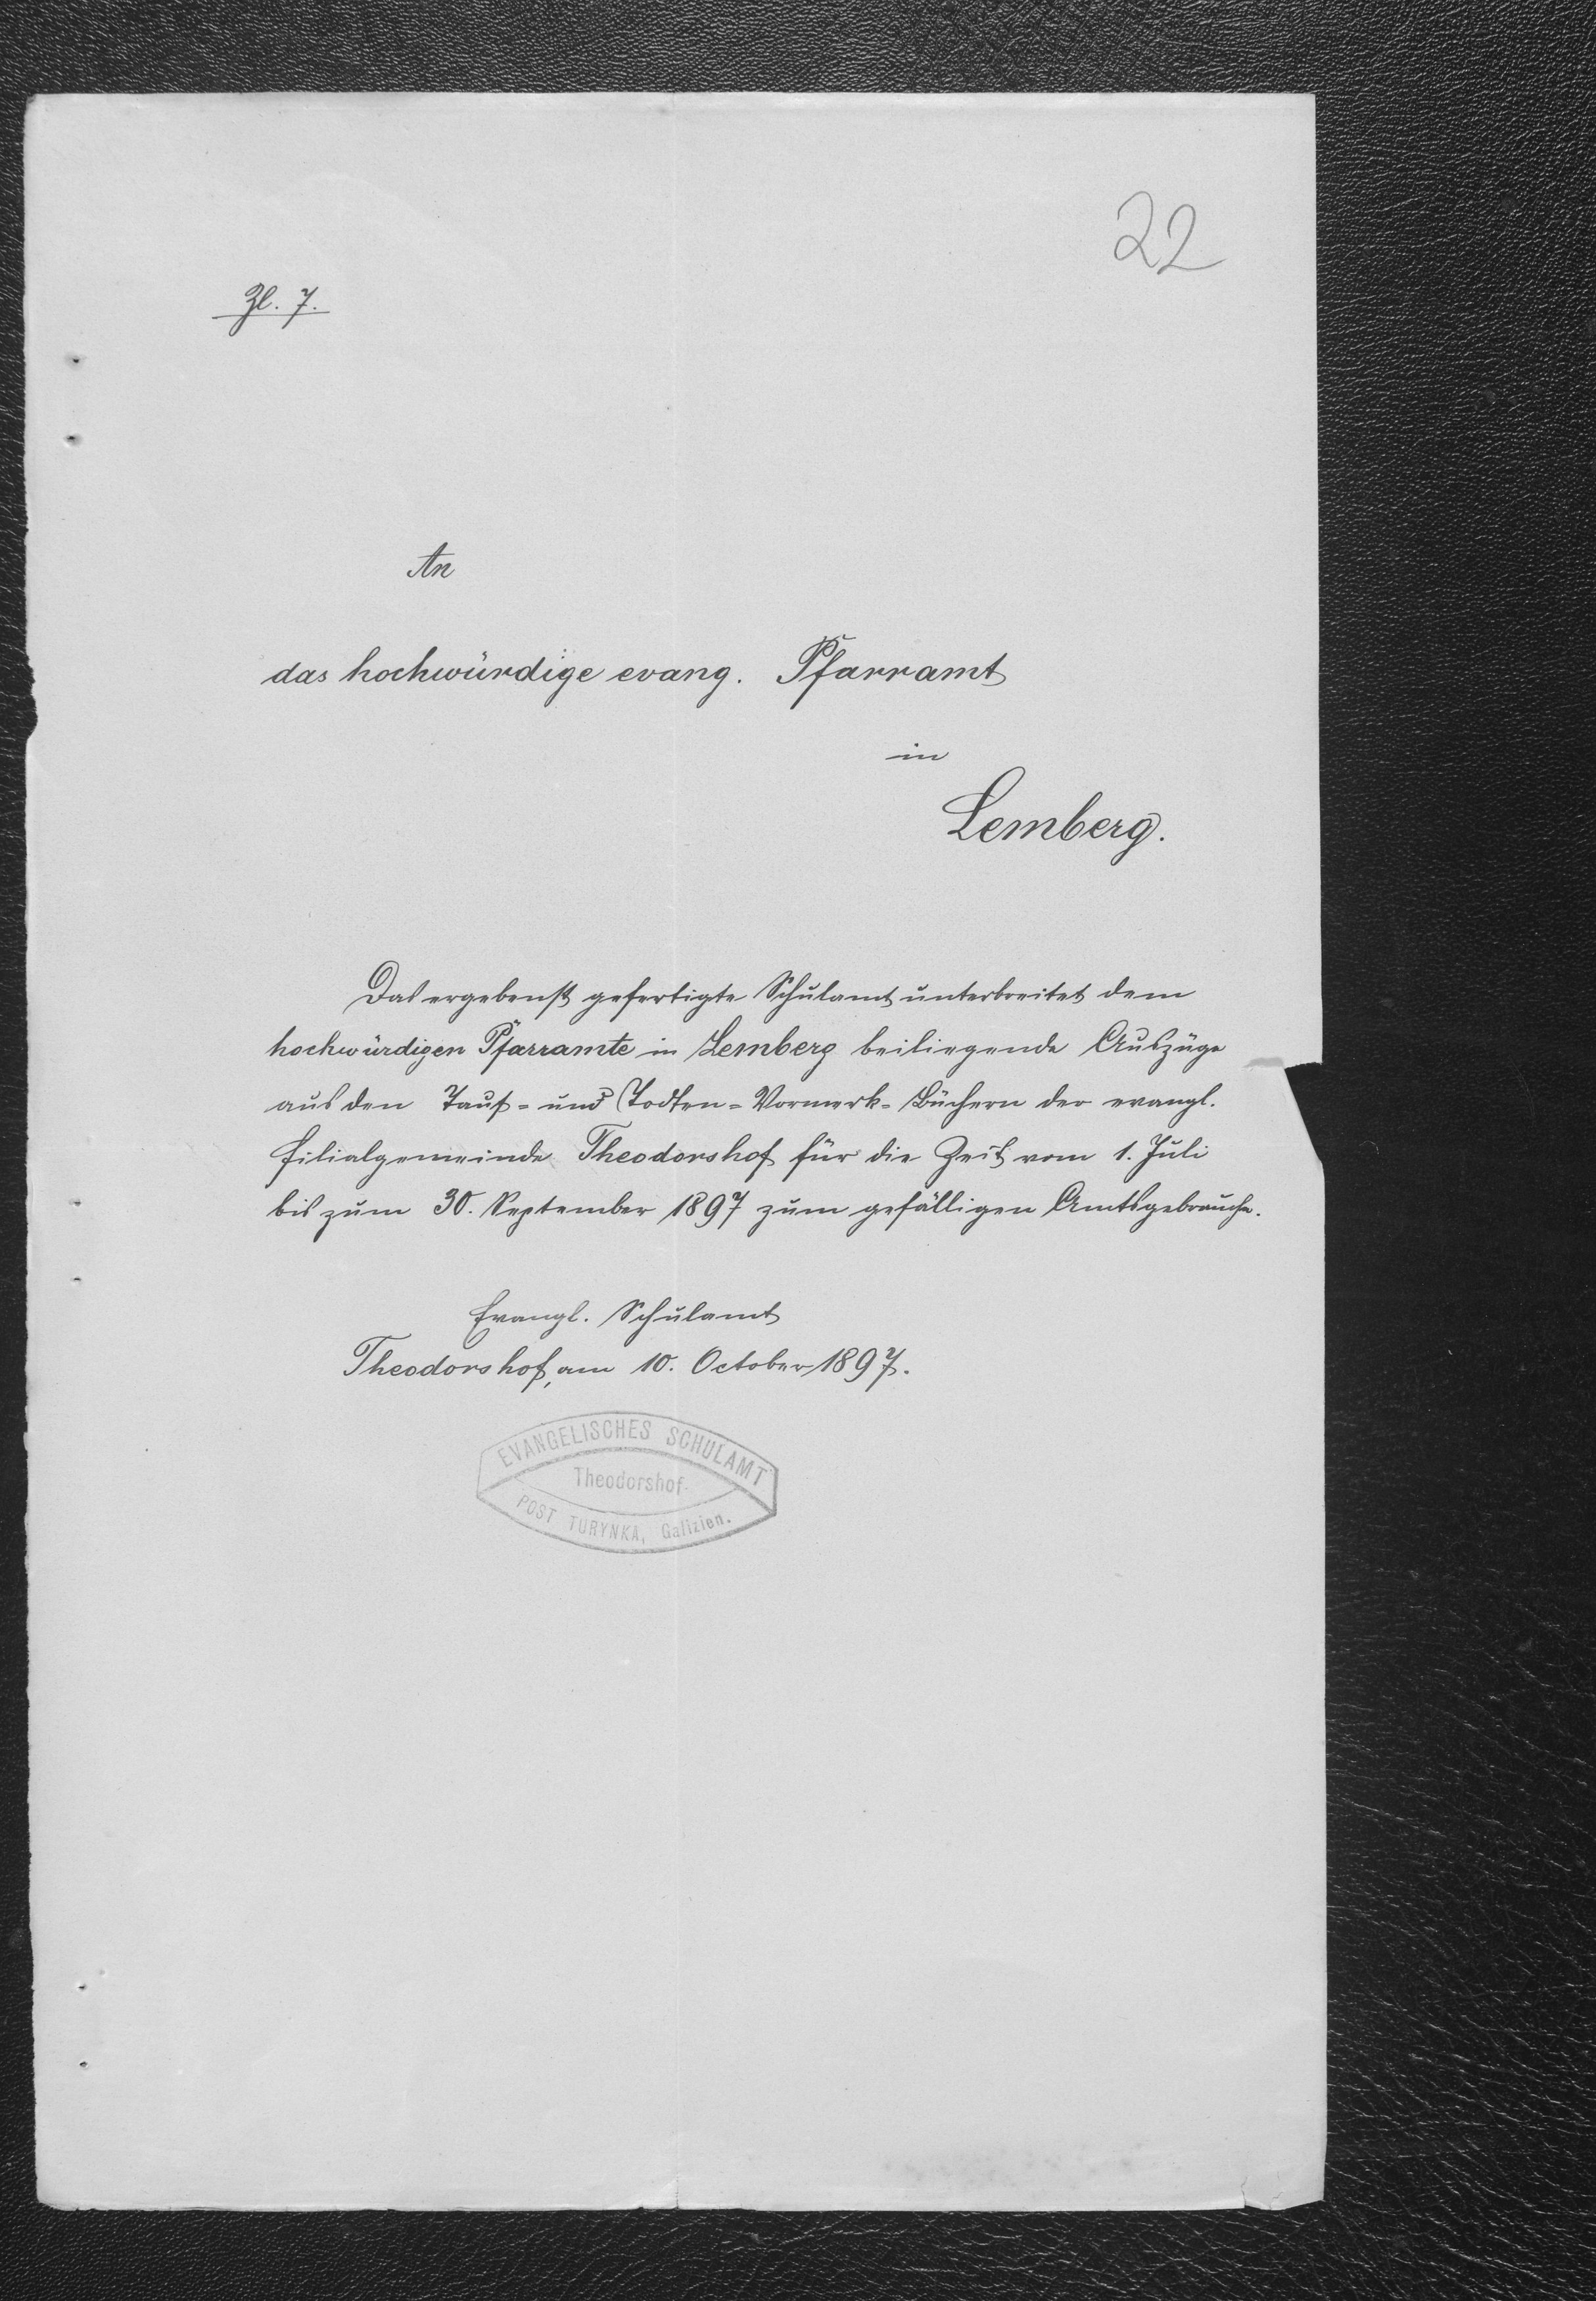 22
Zl. 7.
An
das hochwürdige evang. Pfarramt
in
Lemberg.
Das ergebenst gefertigte Schulamt unterbreitet dem
hochwürdigen Pfarramte in Lemberg beiliegende Auszüge
aus den Tauf- und Todten-Vormerk-Büchern der evangl.
Filialgemeinde Theodorshof für die Zeit vom 1. Juli
bis zum 30. September 1897 zum gefälligen Amtsgebrauche.
Evangl. Schulamt
Theodorshof, am 10. October 1897.
EVANGELISCHES SCHULAMT
Theodorshof
POST TURYNKA, Galizien.